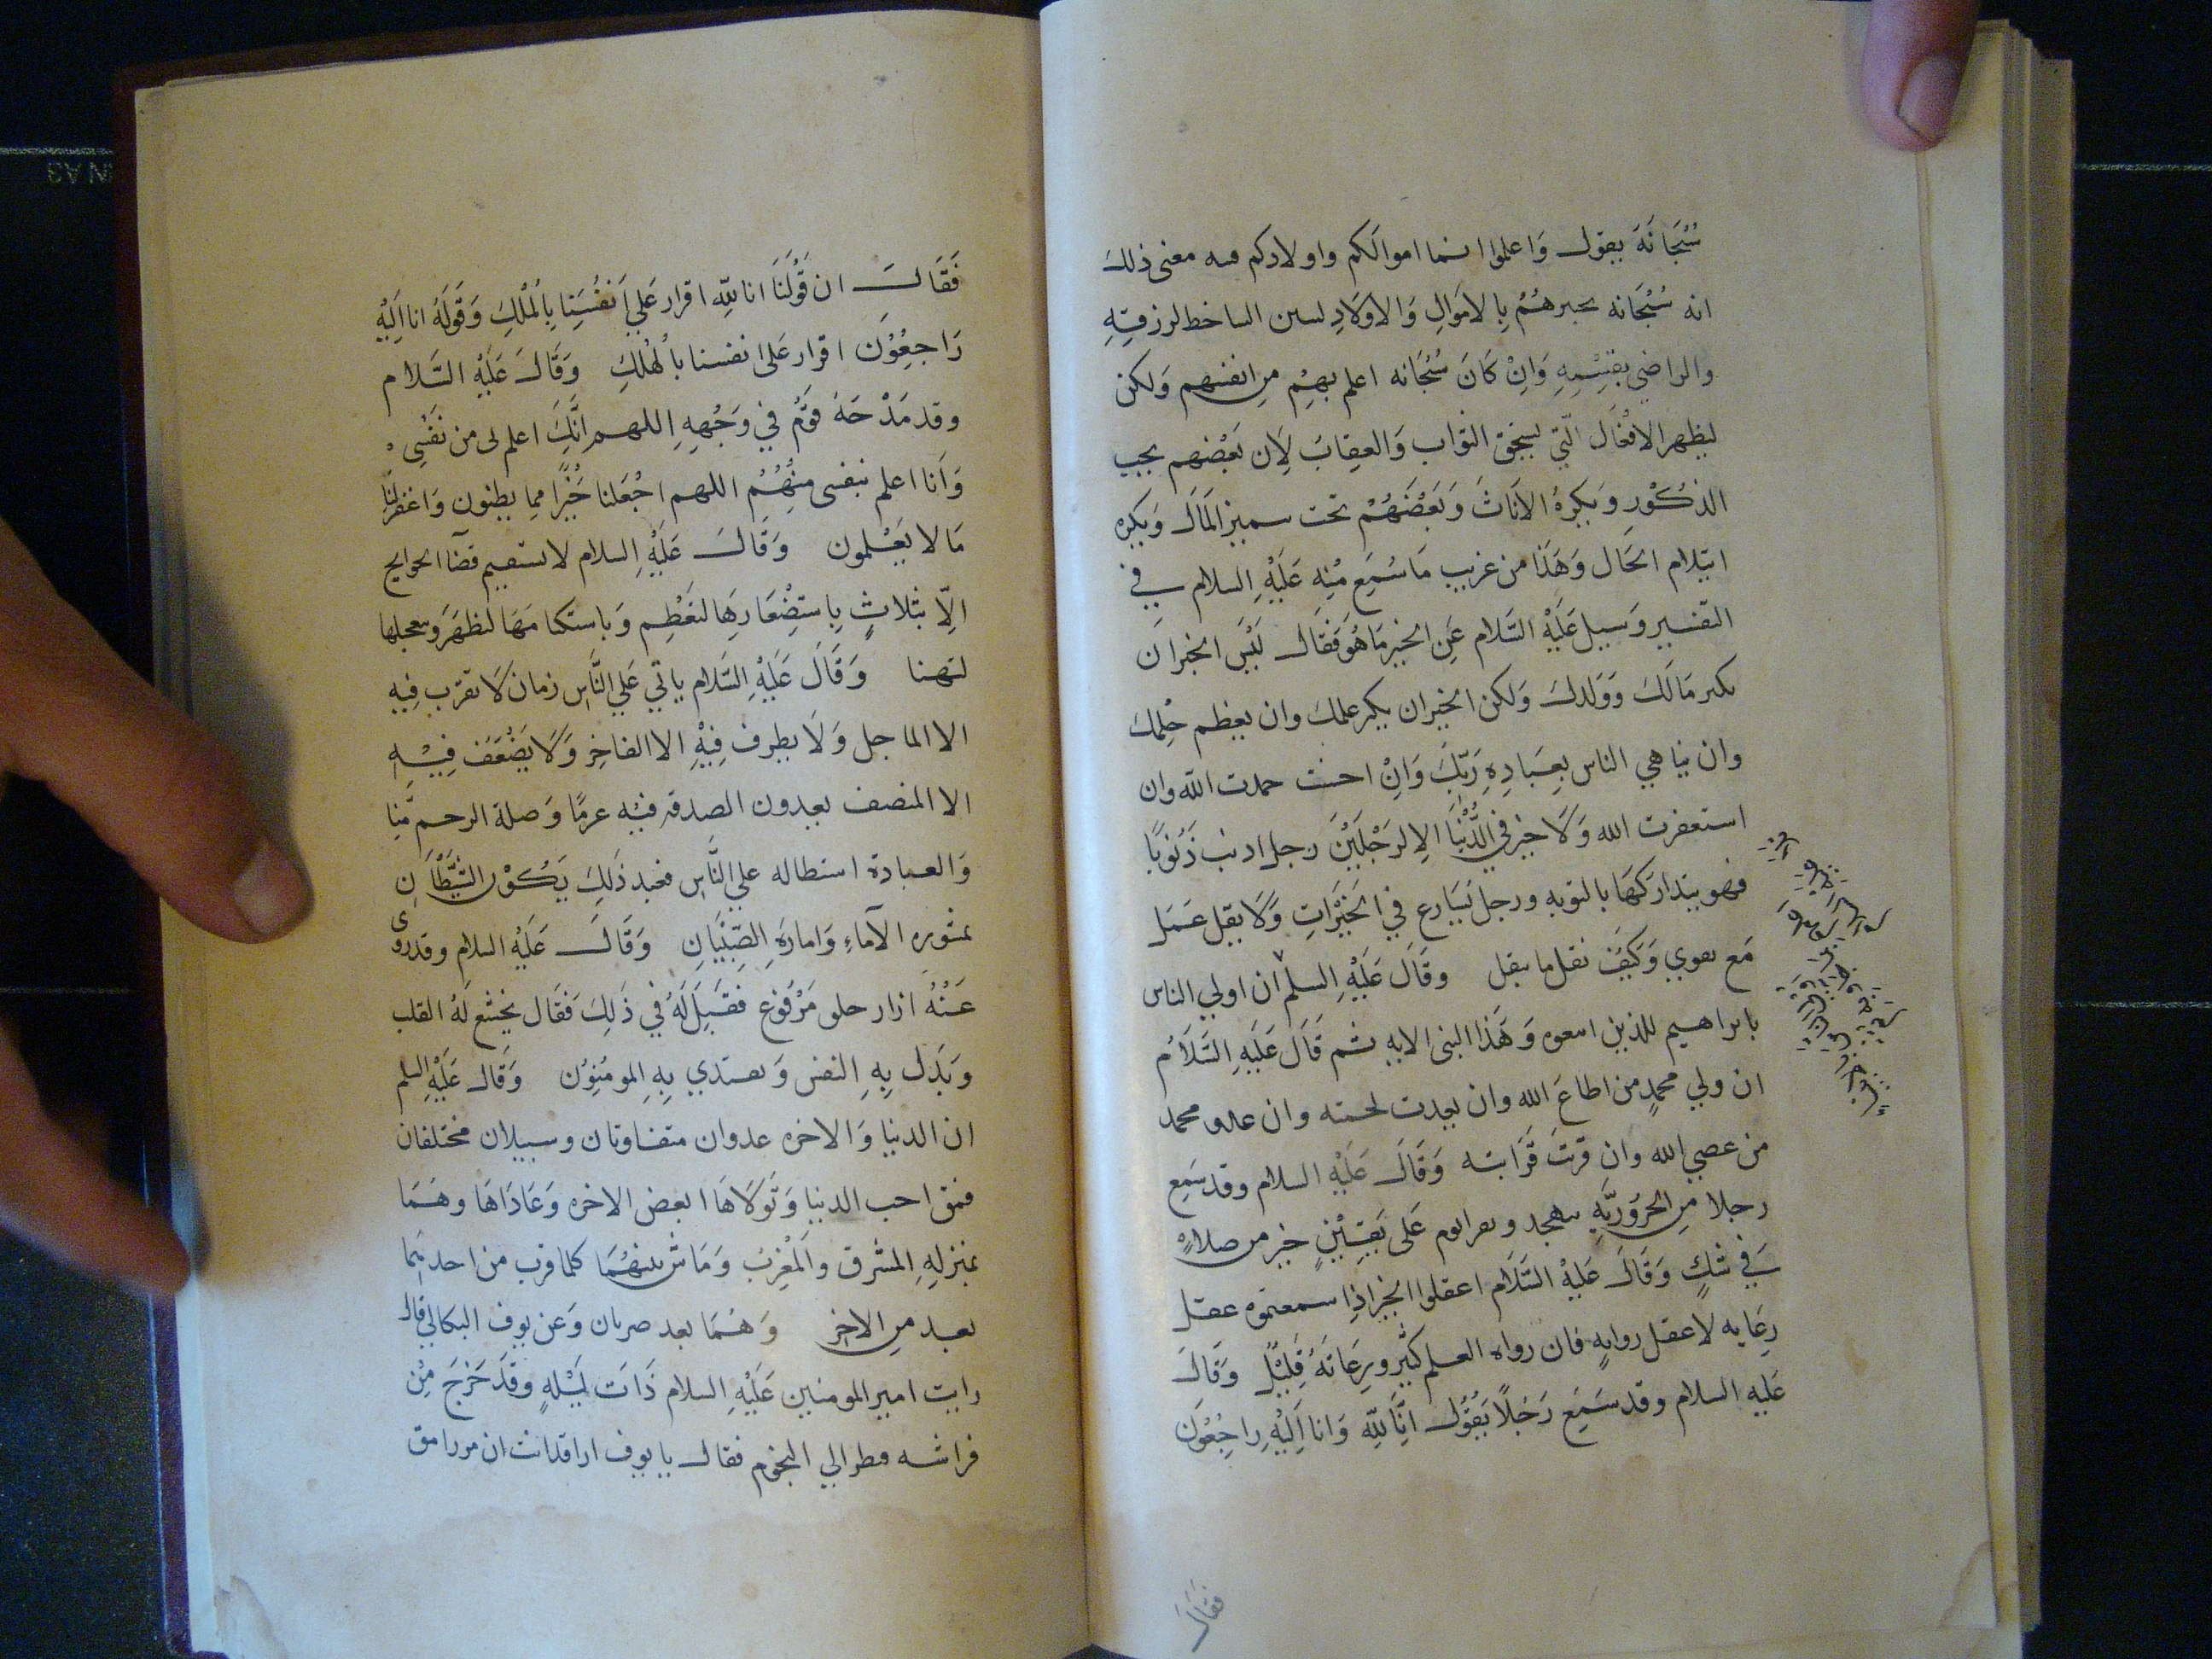 سُبْحَانَهُ يقول وَاعلموا انما اموالكم واولادكم فتنه معنى ذلك
انه سُبْحَانه يختبرهُمْ بِالاموَالِ وَالاولَادِ ليتبين الساخط لرزقِهِ
والراضي بقِسْمِهِ وَانْ كَانَ سُبْحَانه اعلم بهِمْ مِن انفسهم وَلكن
ليظهر الافْعَال الّتي يستحق الثواب وَالعِقابَ لِاَن بَعْضهم يحب
الذكُوْرِ وَيكرهُ الاِنَاثَ وَبَعْضَهُمْ يحب تثمير المَال وَيكره
انثلام الحَال وَهَذا من غريب مَا سُمِعَ مْنِه عَليْهِ السلام في
التفسير وَسيل عَليْهِ السَّلام عَنِ الخير مَا هُوَ فَقَال لَيْسَ الخير ان
يكثر مَالكَ وَوَلدكَ وَلكن الخير ان يكثر علمك وان يعظم حِلمك
وان تباهي الناس بِعِبَادِهِ رَبّكَ وَانْ احسنت حمدت الله وان
استغفرت الله وَلَا خير في الدُّنْيَا الا لرَجُلَيْنَ رجل اذنب ذَنُوبًا
فهو يتداركهَا بالتوبه ورجل يُسَارع في الخَيْرَاتِ وَلَا يقل عَمَل
مَع تقوي وَكيْفَ يقل ما يتقبل وقَالَ عَليْهِ السلم ان اولي الناس
بابراهيم للذين اتبعوه وَهَذا النبى الايه ثم قَالَ عَليهِ السَّلامُ
ان ولي محمدٍ من اطاعَ الله وان بعدت لحمته وان عدو محمد
من عصي الله وان قربتَ قَرَابته وَقَالَ عَليْهِ السلام وقد سَمِع
رجلا مِن الحَرُوْرِيَّهِ يتهجد ويقرا نوم عَلى يَقِيْنٍ خير من صلاه
فِي شكٍ وَقَالَ عَليْهِ السَّلَام اعقلوا الخبر اذِا سمعتموه عقل
رِعَايه لا عقل روايهٍ فان رواه العلم كثير ورِعَاتهُ قِليْلٌ وَقَالَ
عَليه السلام وقد سَمِعَ رَجُلًا يَقُوْلُ انّا لِلّه وَانا اِليْهِ رَاجِعُوْنَ
فقَالَ
فَقَالَ ان قَوْلَنَا انا للّهِ اقرار عَلي اَنفُسِنَا بِالمُلْكِ وَقَولَهُ انا اِليْهِ
رَاجِعُوْنَ اقرار عَلى انفسنا بالهُلكِ وَقَالَ عَلَيْهِ السَّلام
وقد مَدْحَهُ قَومٌ في وَجْهِهِ اللهم اِنَّكَ اعلم لى من نَفْسِى
وَانا اعلم بنفسى مِنْهُمُ اللهم اجْعَلنا خَيْرًا مما يظنون وَاغفر لنا
مَا لا يَعْلمون وَقَالَ عَليْهِ السلام لا يستقيم قضآ الحوايج
الِّا بثلاثٍ بِاستِصْغَارِهَا لتَعْظِم وَباستكتامهَا لتظهَرَ وبتعجيلها
لتهنا وَقَالَ عَليْهِ السَّلام ياتي عَلي النَّاس زمان لَا يقرّب فِيهِ
الا الماحل وَلَا يظرف فِيْهِ الا الفاخِر وَلَا يَضْعَف فِيْهِ
الا المنصف يعدون الصدقه فيْه غرمًا وَصلة الرحم مَنّا
وَالعبادة استطاله علي النَّاسِ فعند ذَلِكَ يَكُوْن السُّلْطَانِ
بمثوره الآماءِ وَامارهَ الصِّبْيَانِ وَقَالَ عَليْهِ السلام وقد روى
عَنْهُ ازار خلق مَرْقوْع فقِيلَ لَهُ في ذَلِكَ فَقَال يخشع لَهُ القلب
وَيَذل بِهِ النفس وَيقتدي بِهِ المومُنِوْن وَقَالَ عَلَيْهِ السلم
ان الدنيا وَالاخره عدوان متفاوتان وسبيلان مختلفان
فمن احب الدنيا وَتَوَلَاهَا ابغض الاخره وَعَادَاهَا وهمَا
بمنزلهِ المشرق والمَغْرِبَ وَمَاش بينهُمَا كلما قرب من احدهما
بعد من الاخر وَهمَا بعد ضرتان وَعن نوف البكالي قال
رايت امير المومنين عَليْهِ السلام ذَات لَيْلهٍ وَقَدْ خَرَجَ مِنْ
فراشه فنظر الي النجوم فقال يا نوف اراقد انت ام رامق